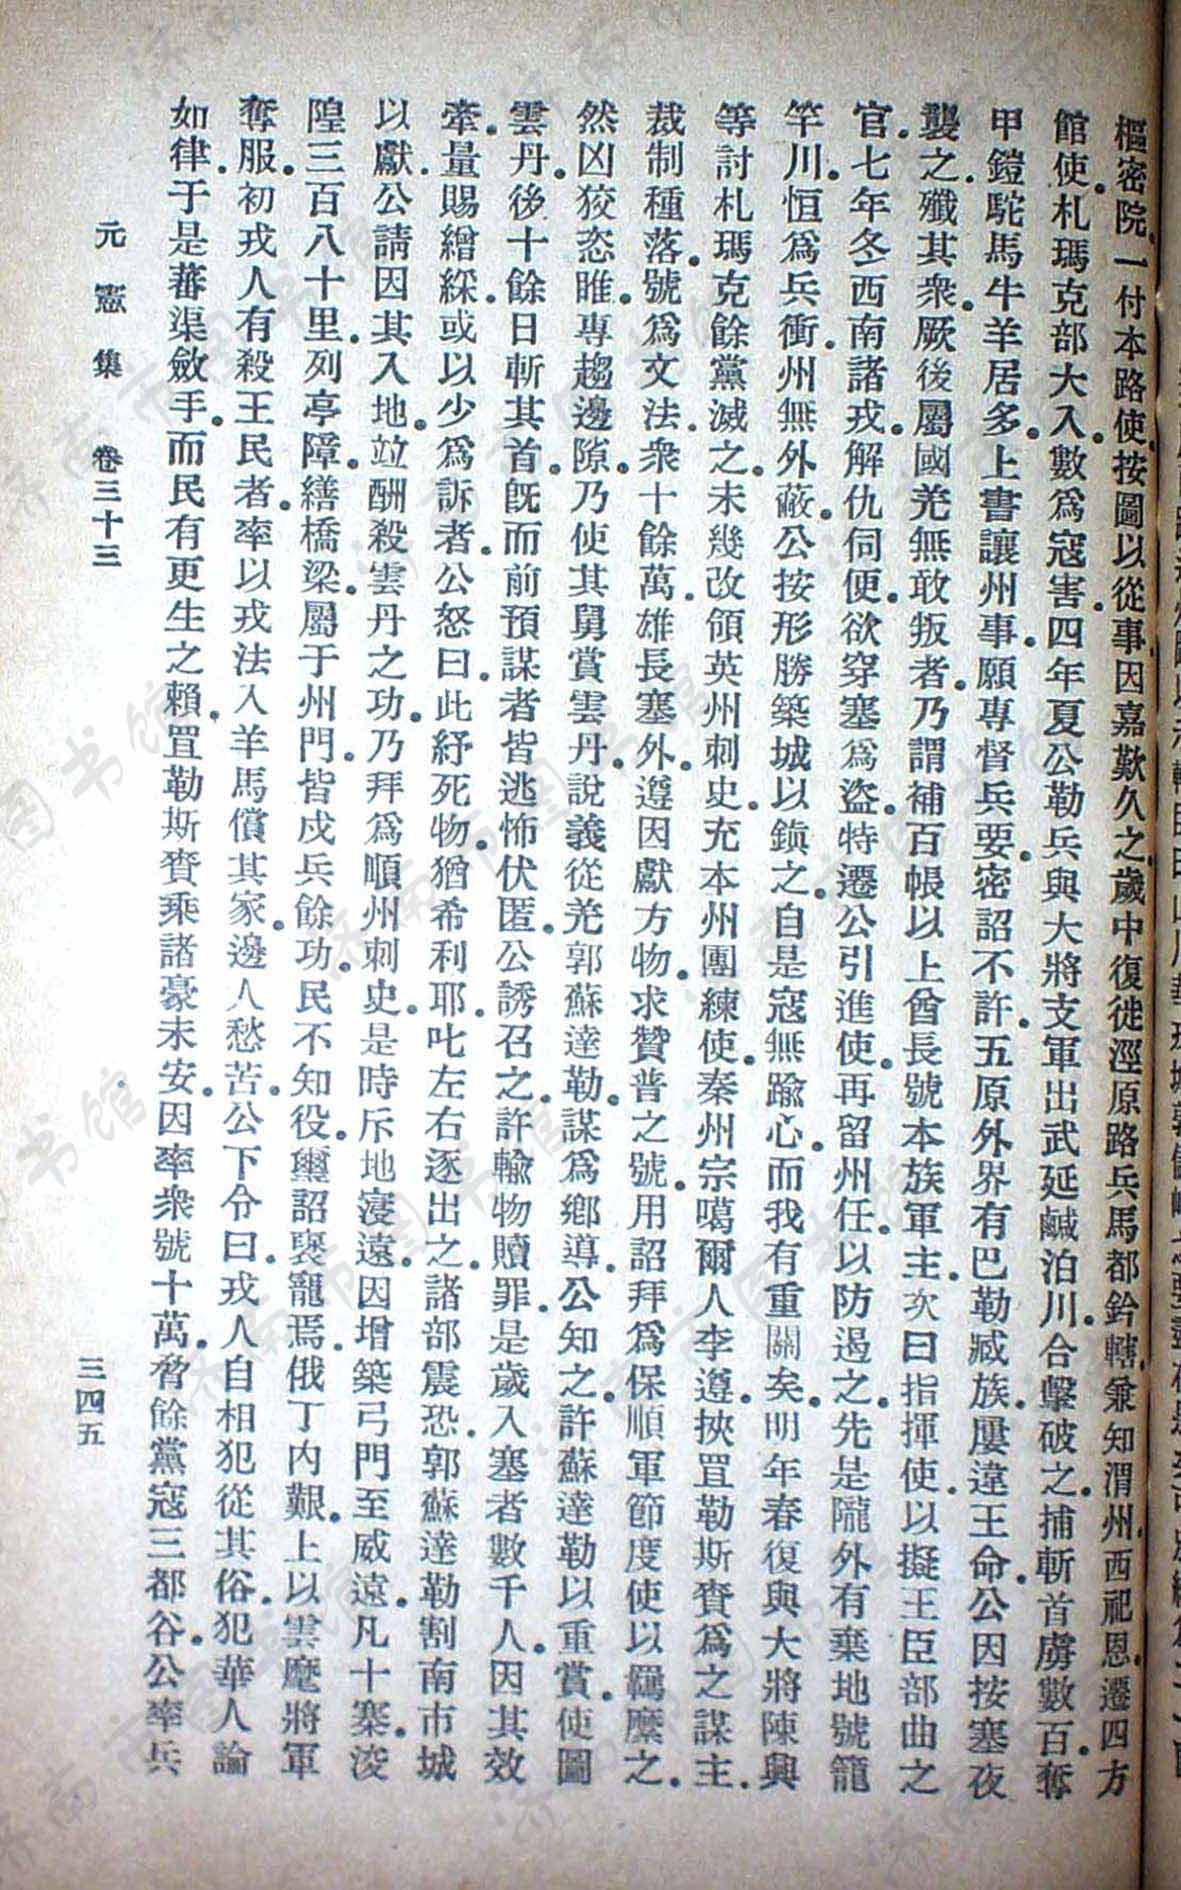 樞密院一付本路使按圖以從事因嘉歎久之歲中復徙涇原路兵馬都鈐轄兼知渭州西祀恩遷四方
館使札瑪克部大入數爲寇害四年夏公勒兵與大將支軍出武延鹹泊川合擊破之捕斬首虜數百奪
甲鎧駝馬牛羊居多上書讓州事願專督兵要密詔不許五原外界有巴勒臧族屢違王命公因按塞夜
襲之殲其衆厥後屬國羌無敢叛者乃謂補百帳以上酋長號本族軍主次曰指揮使以擬王臣部曲之
官七年冬西南諸戎解仇伺便欲穿塞爲盜特遷公引進使再留州任以防遏之先是隴外有棄地號籠
竿川恒爲兵衝州無外蔽公按形勝築城以鎮之自是寇無踰心而我有重關矣明年春復與大將陳興
等討札瑪克餘黨滅之未幾改領英州刺史充本州團練使秦州宗噶爾人李遵挾罝勒斯賚爲之謀主
裁制種落號爲文法衆十餘萬雄長塞外遵因獻方物求贊普之號用詔拜爲保順軍節度使以羈縻之
然凶狡恣睢專趨邊隙乃使其舅賞雲丹說義從羌郭蘇達勒謀爲鄉導公知之許蘇達勒以重賞使圖
雲丹後十餘日斬其首旣而前預謀者皆逃怖伏匿公誘召之許輸物贖罪是歲入塞者數千人因其效
牽量賜繒綵或以少爲訴者公怒曰此紓死物猶希利耶叱左右逐出之諸部震恐郭蘇達勒割南市城
以獻公請因其入地竝酬殺雲丹之功乃拜爲順州刺史是時斥地寖遠因增築弓門至威遠凡十寨浚
隍三百八十里列亭障繕橋梁屬于州門皆戍兵餘功民不知役璽詔襃寵焉俄丁內艱上以雲麾將軍
奪服初戎人有殺王民者率以戎法入羊馬償其家邊人愁苦公下令曰戎人自相犯從其俗犯華人論
如律于是蕃渠斂手而民有更生之賴罝勒斯賚乘諸豪未安因率衆號十萬脅餘黨寇三都谷公率兵
元憲集 卷三十三 三四五